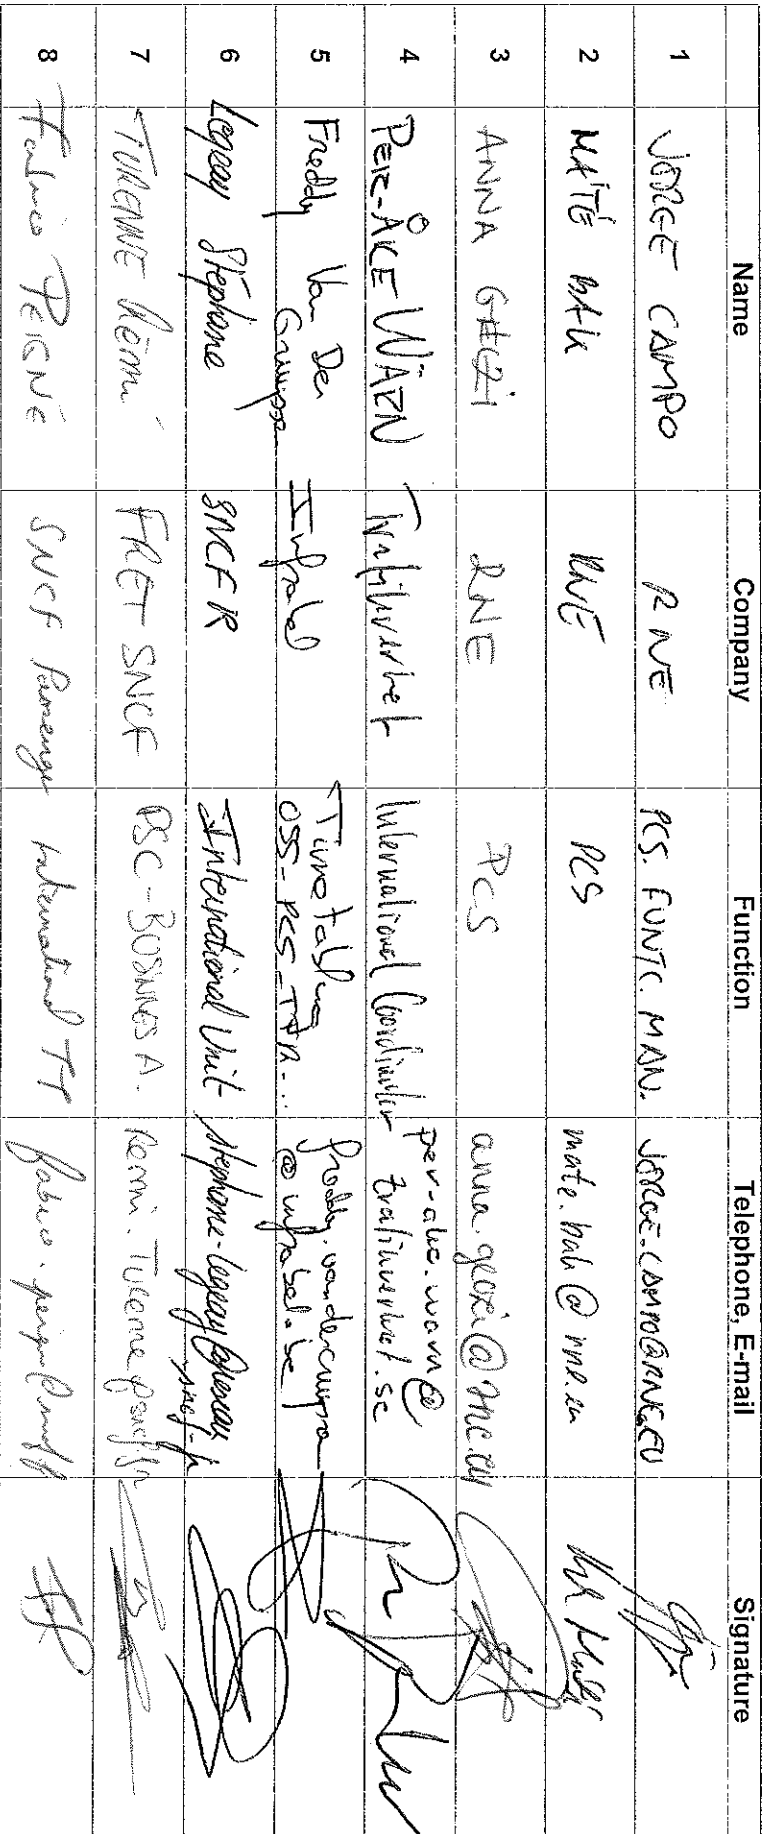 Name Company Function Telephone, E-mail Signature
1 JORGE CAMPO RNE PCS. FUNTC. MAN. JORGE.CAMPO@RNE.EU
2 MÁTÉ BAK RNE PCS mate.bak@rne.eu
3 ANNA GHEZI RNE PCS
4 PER-ÅKE WÄRN Trafikverket International Coordinator per-ake.warn@
trafikverket.se
5 Freddy Van Der Infrabel Timetabling freddy.vandercruyssen
OSS-PCS-TTR... @infrabel.be
6 Legeay Stéphane SNCF R International Unit stephane.legeay@reseau
.sncf.fr
7 TURENNE Rémi FRET SNCF PSC-BUSINNES A. Remi.Turenne@sncf.fr
8 Fabrice PEIGNÉ SNCF Passenger International TT